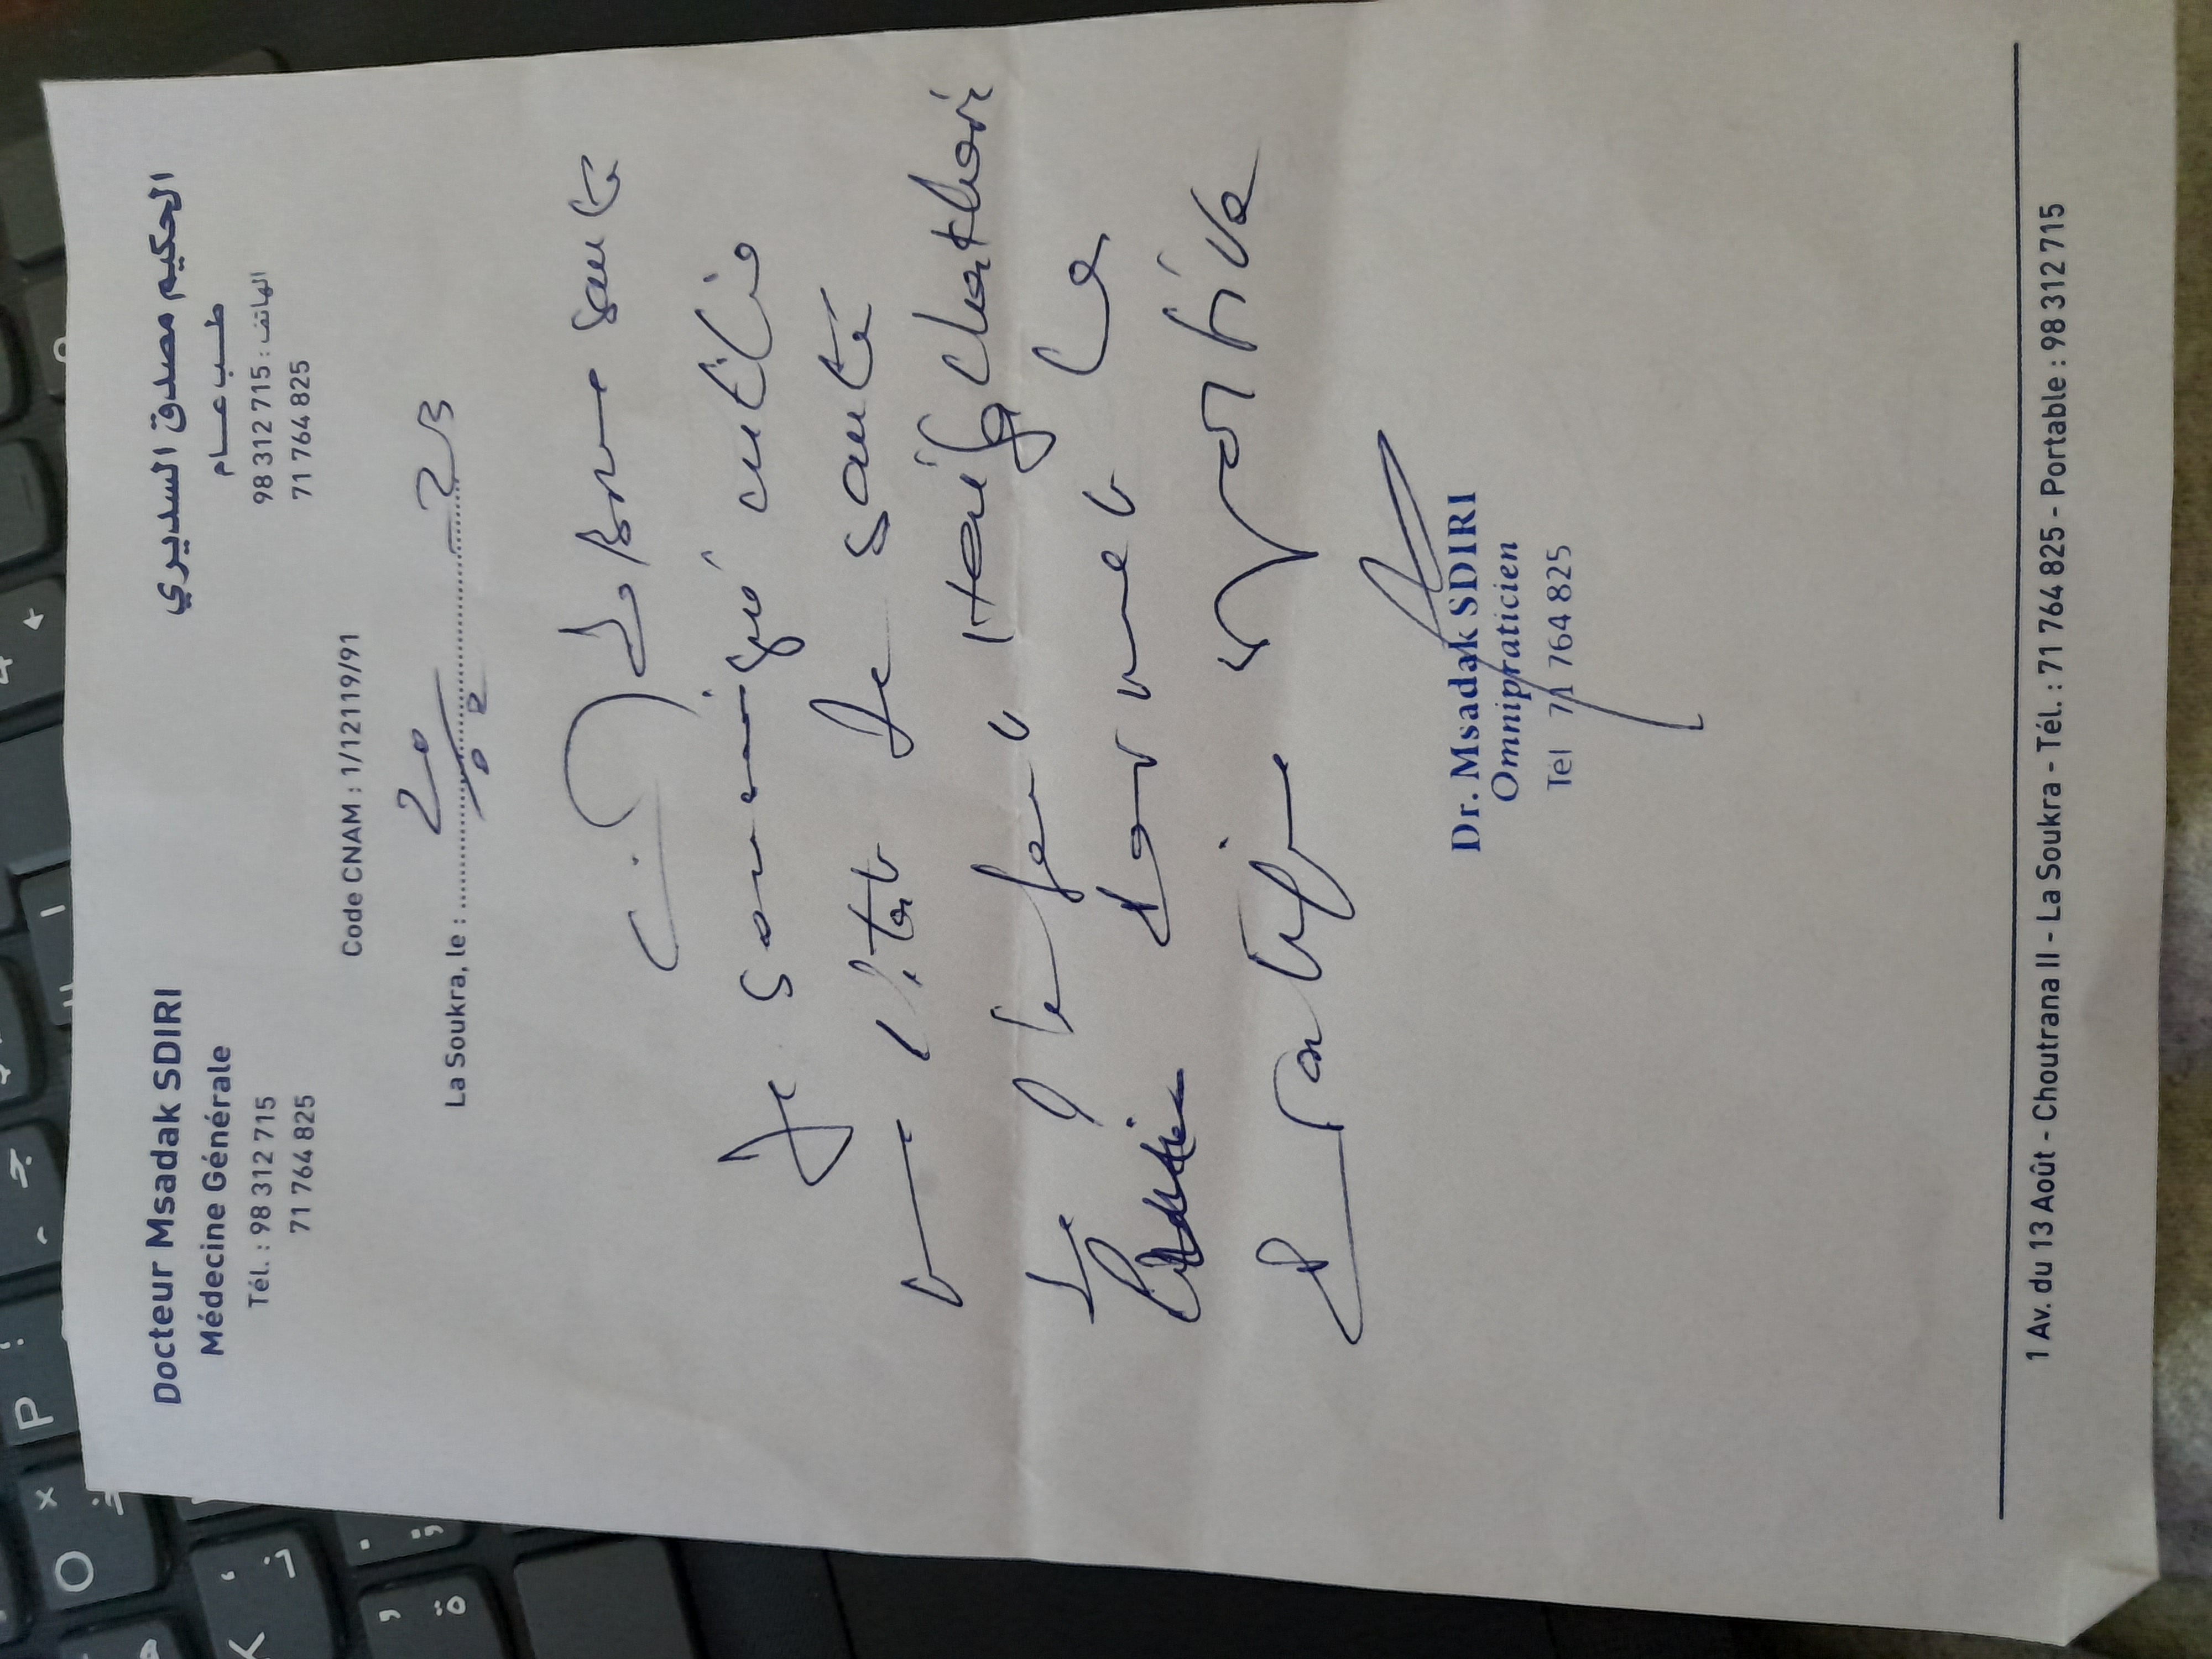 Docteur Msadak SDIRI
Médecine Générale
Tél. : 98 312 715
71 764 825
الحكيم مصدق السديري
طب عام
الهاتف : 98 312 715
71 764 825
Code CNAM : 1/12119/91
La Soukra, le : 20 23
de bonne santé
Je soussigné certifie
l'état de santé
de l'enfant
permet la
pratique sportive
Dr. Msadak SDIRI
Omnipraticien
Tel 71 764 825
1 Av. du 13 Août - Choutrana II - La Soukra - Tél. : 71 764 825 - Portable : 98 312 715